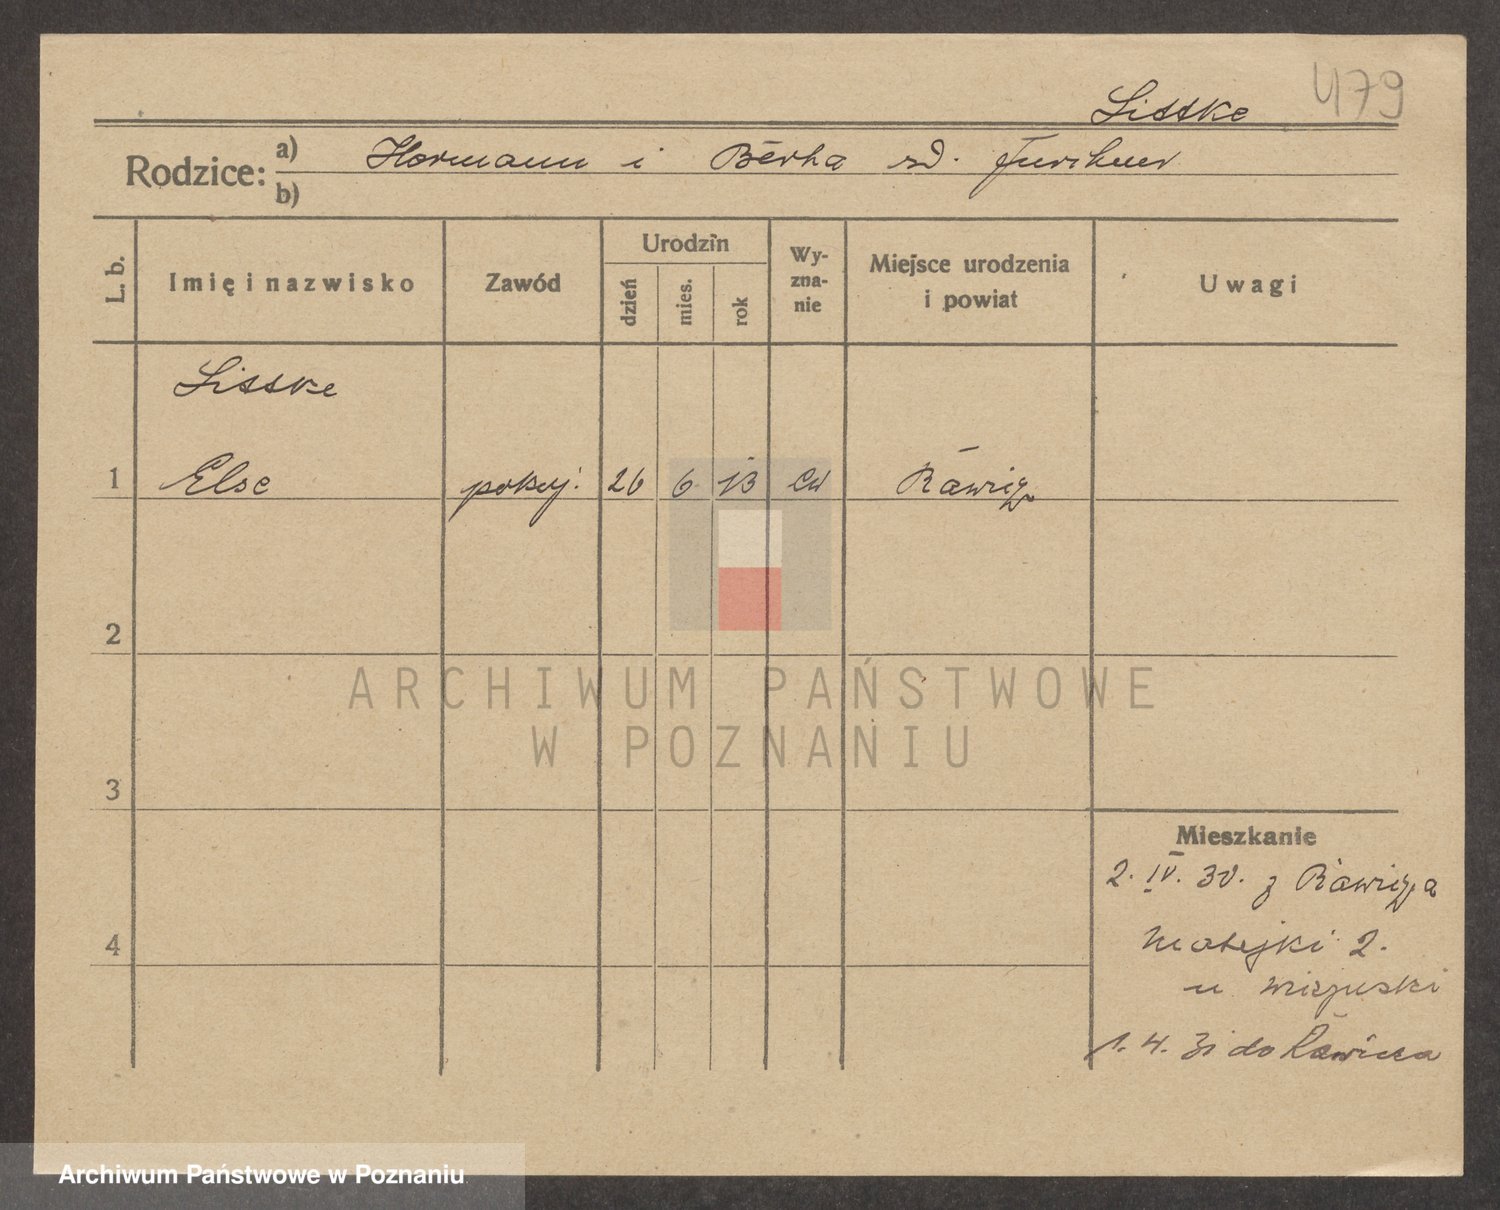 479
Lisske
Rodzice: a) Hermann i Berha
b)
L. b. Imię i nazwisko Zawód Urodzin dzień mies. rok Wyznanie Miejsce urodzenia i powiat Uwagi
Lisske
1 Else pokoj. 26 6 13 ew Rawicz
2
3
4
Mieszkanie
2. IV. 30. z Rawicza
Matejki 2.
u
1. 4. 31 do Rawicza
ARCHIWUM PAŃSTWOWE
W POZNANIU
Archiwum Państwowe w Poznaniu